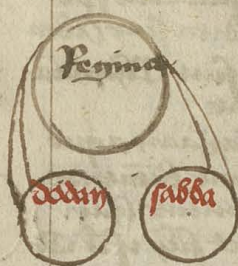 Regma
dodan sabba